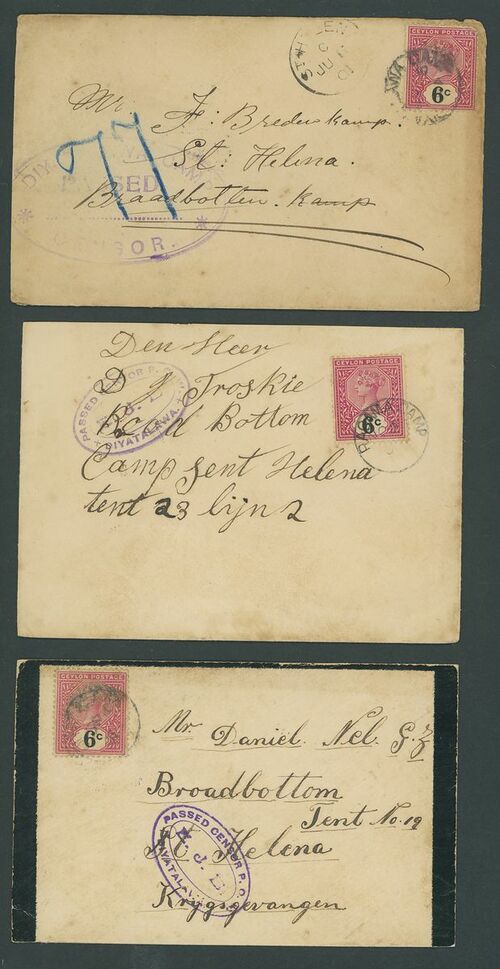 CEYLON POSTAGE
6c
Mr F: Bredenkamp.
St: Helena.
77
PASSED
Braadbotten kamp
CENSOR.
CEYLON POSTAGE
6c
Den Heer
PASSED CENSOR P.
DIYATALAWA
D J Troskie
Road Bottom
Camp Sent Helena
tent 23 lijn 2
CEYLON POSTAGE
6c
Mr Daniel. Nel. G.Z
Broadbottom
Tent No. 19
PASSED CENSOR P.O.
St Helena
Krygsgevangen